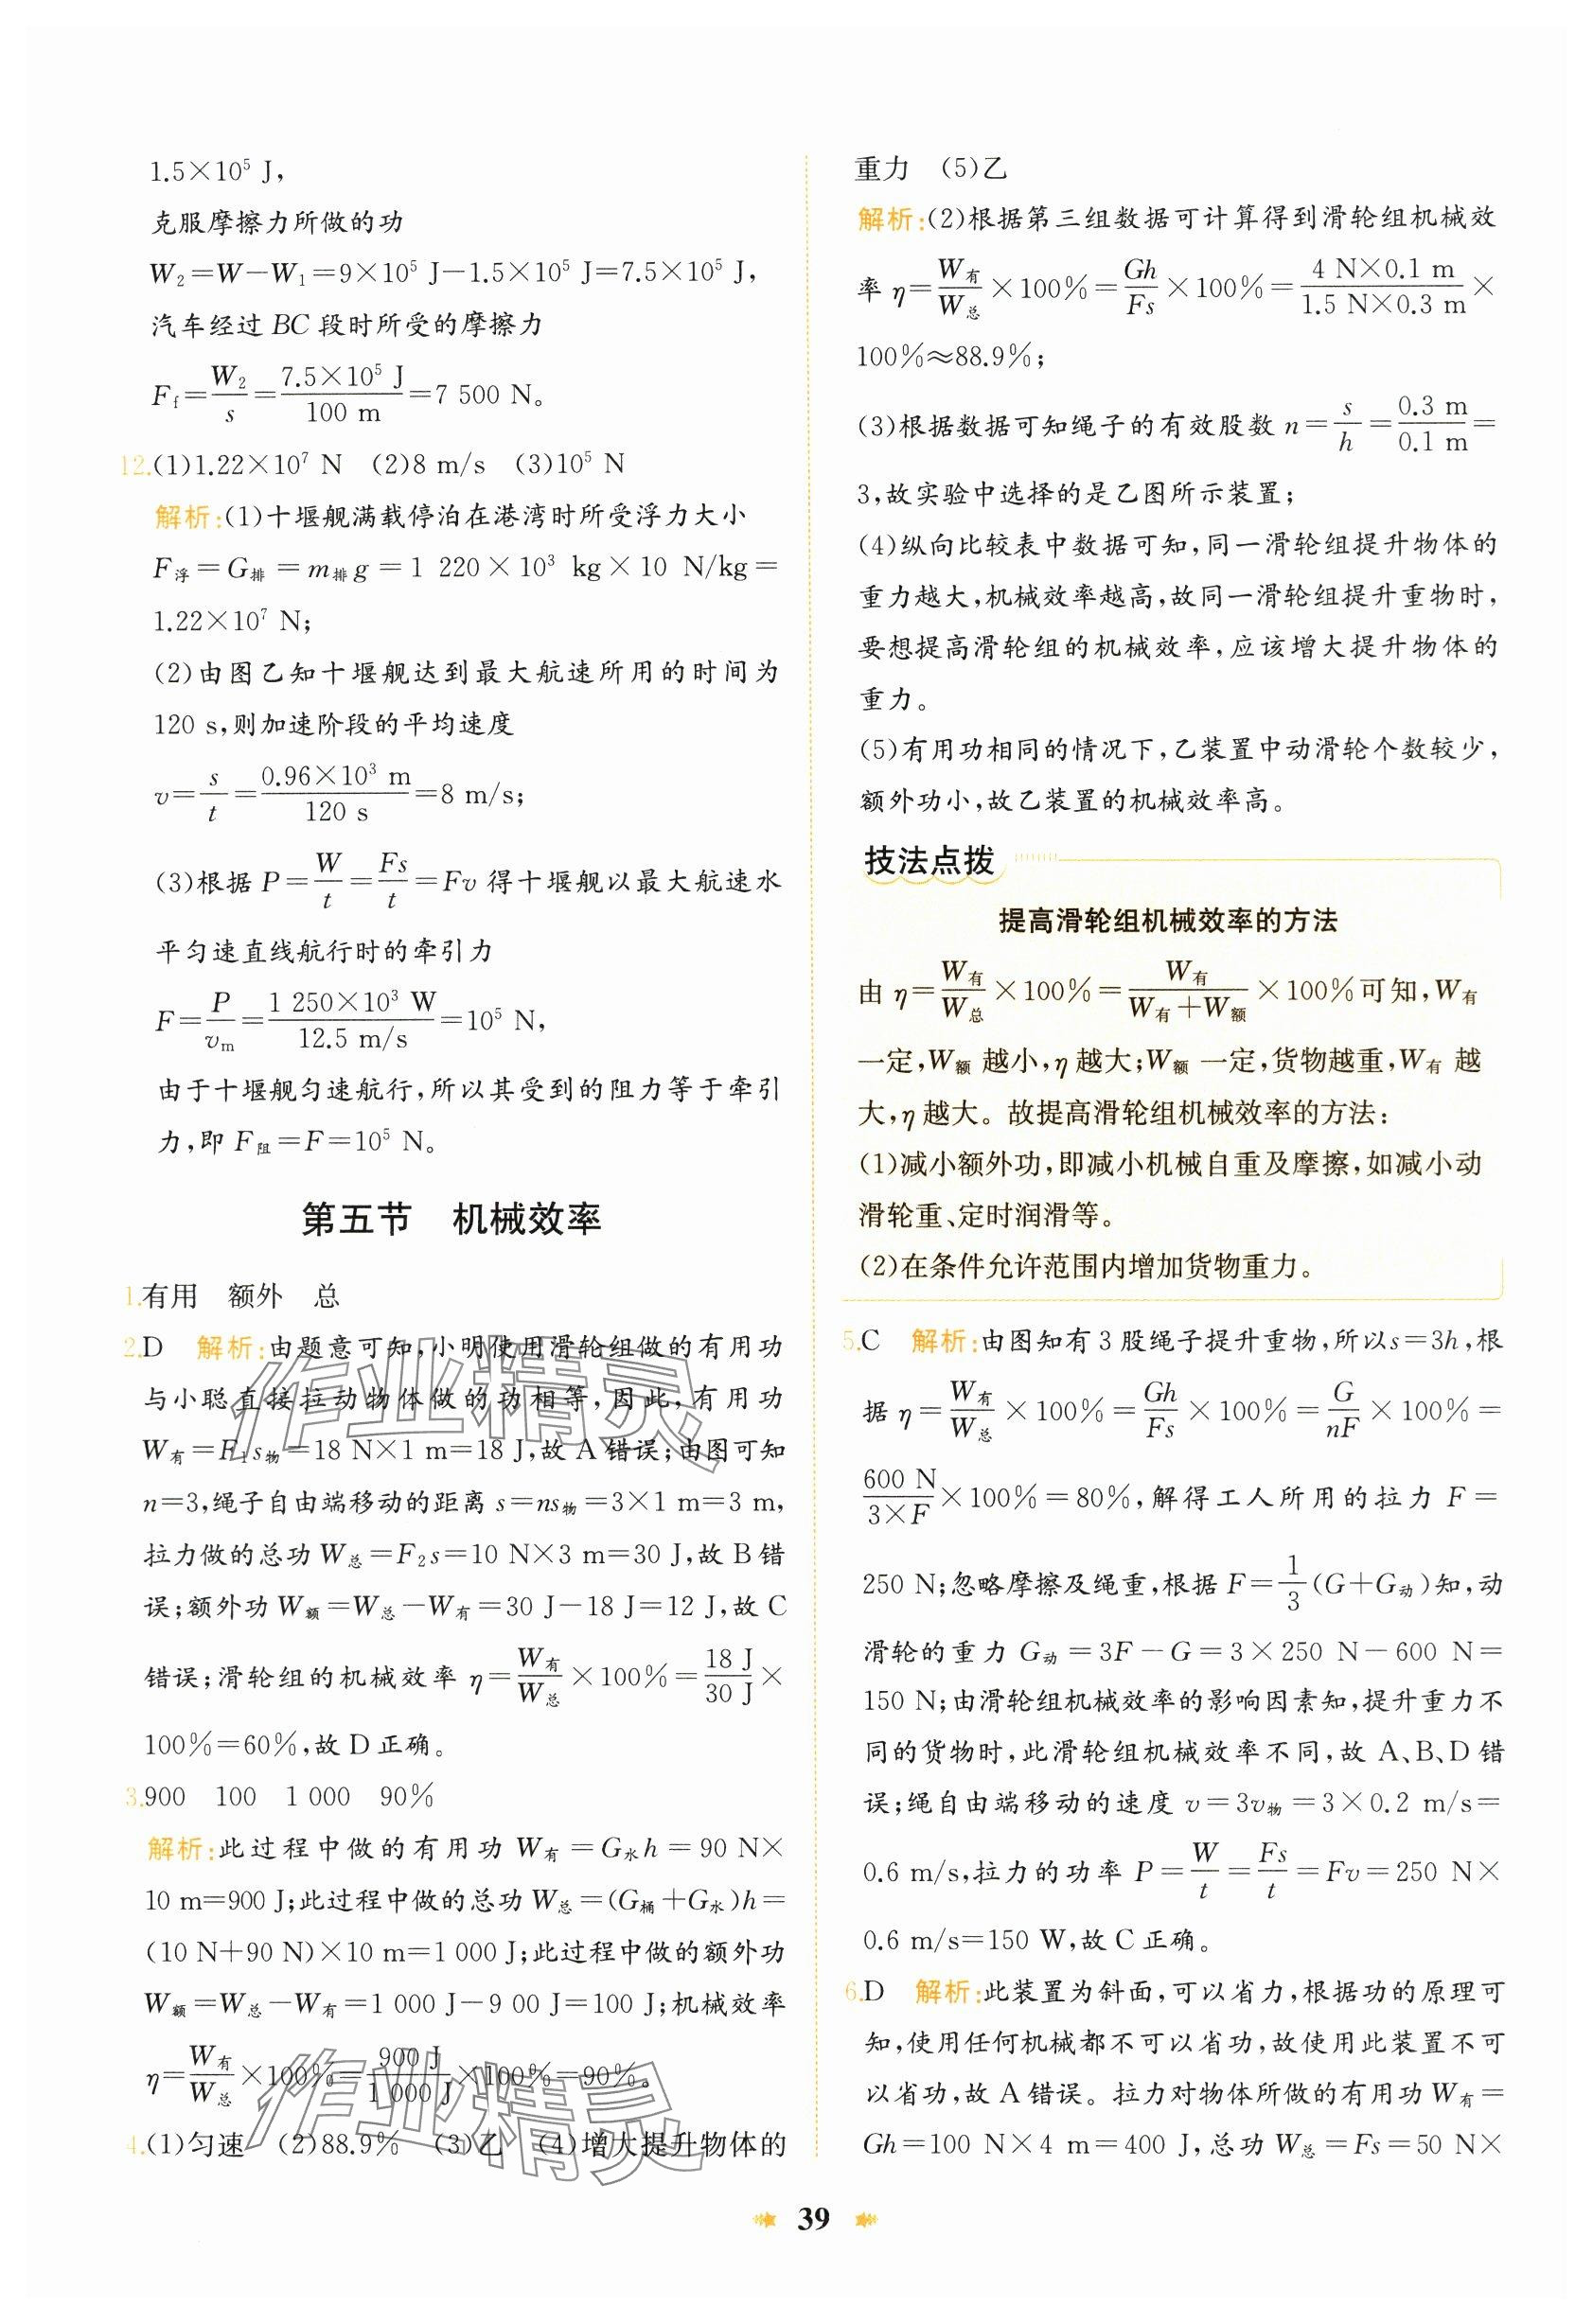 1.5×10⁵ J,
克服摩擦力所做的功
W₂=W−W₁=9×10⁵ J−1.5×10⁵ J=7.5×10⁵ J,
汽车经过 BC 段时所受的摩擦力
F_f=W₂/s=7.5×10⁵ J/100 m=7 500 N。
12.(1)1.22×10⁷ N (2)8 m/s (3)10⁵ N
解析:(1)十堰舰满载停泊在港湾时所受浮力大小
F浮=G排=m排g=1 220×10³ kg×10 N/kg=
1.22×10⁷ N;
(2)由图乙知十堰舰达到最大航速所用的时间为
120 s,则加速阶段的平均速度
v=s/t=0.96×10³ m/120 s=8 m/s;
(3)根据 P=W/t=Fs/t=Fv 得十堰舰以最大航速水
平匀速直线航行时的牵引力
F=P/v_m=1 250×10³ W/12.5 m/s=10⁵ N,
由于十堰舰匀速航行,所以其受到的阻力等于牵引
力,即 F阻=F=10⁵ N。
第五节 机械效率
1.有用 额外 总
2.D 解析:由题意可知,小明使用滑轮组做的有用功
与小聪直接拉动物体做的功相等,因此,有用功
W有=F₁s物=18 N×1 m=18 J,故 A 错误;由图可知
n=3,绳子自由端移动的距离 s=ns物=3×1 m=3 m,
拉力做的总功 W总=F₂s=10 N×3 m=30 J,故 B 错
误;额外功 W额=W总−W有=30 J−18 J=12 J,故 C
错误;滑轮组的机械效率 η=W有/W总×100%=18 J/30 J×
100%=60%,故 D 正确。
3.900 100 1 000 90%
解析:此过程中做的有用功 W有=G水h=90 N×
10 m=900 J;此过程中做的总功 W总=(G桶+G水)h=
(10 N+90 N)×10 m=1 000 J;此过程中做的额外功
W额=W总−W有=1 000 J−9 00 J=100 J;机械效率
η=W有/W总×100%=900 J/1 000 J×100%=90%。
4.(1)匀速 (2)88.9% (3)乙 (4)增大提升物体的
重力 (5)乙
解析:(2)根据第三组数据可计算得到滑轮组机械效
率 η=W有/W总×100%=Gh/Fs×100%=4 N×0.1 m/1.5 N×0.3 m×
100%≈88.9%;
(3)根据数据可知绳子的有效股数 n=s/h=0.3 m/0.1 m=
3,故实验中选择的是乙图所示装置;
(4)纵向比较表中数据可知,同一滑轮组提升物体的
重力越大,机械效率越高,故同一滑轮组提升重物时,
要想提高滑轮组的机械效率,应该增大提升物体的
重力。
(5)有用功相同的情况下,乙装置中动滑轮个数较少,
额外功小,故乙装置的机械效率高。
技法点拨
提高滑轮组机械效率的方法
由 η=W有/W总×100%=W有/(W有+W额)×100%可知,W有
一定,W额 越小,η 越大;W额 一定,货物越重,W有 越
大,η 越大。故提高滑轮组机械效率的方法:
(1)减小额外功,即减小机械自重及摩擦,如减小动
滑轮重、定时润滑等。
(2)在条件允许范围内增加货物重力。
5.C 解析:由图知有 3 股绳子提升重物,所以s=3h,根
据 η=W有/W总×100%=Gh/Fs×100%=G/nF×100%=
600 N/3×F×100%=80%,解得工人所用的拉力 F=
250 N;忽略摩擦及绳重,根据 F=1/3(G+G动)知,动
滑轮的重力 G动=3F−G=3×250 N−600 N=
150 N;由滑轮组机械效率的影响因素知,提升重力不
同的货物时,此滑轮组机械效率不同,故 A、B、D 错
误;绳自由端移动的速度 v=3v物=3×0.2 m/s=
0.6 m/s,拉力的功率 P=W/t=Fs/t=Fv=250 N×
0.6 m/s=150 W,故 C 正确。
6.D 解析:此装置为斜面,可以省力,根据功的原理可
知,使用任何机械都不可以省功,故使用此装置不可
以省功,故 A 错误。拉力对物体所做的有用功 W有=
Gh=100 N×4 m=400 J,总功 W总=Fs=50 N×
39
作业精灵
作业精灵